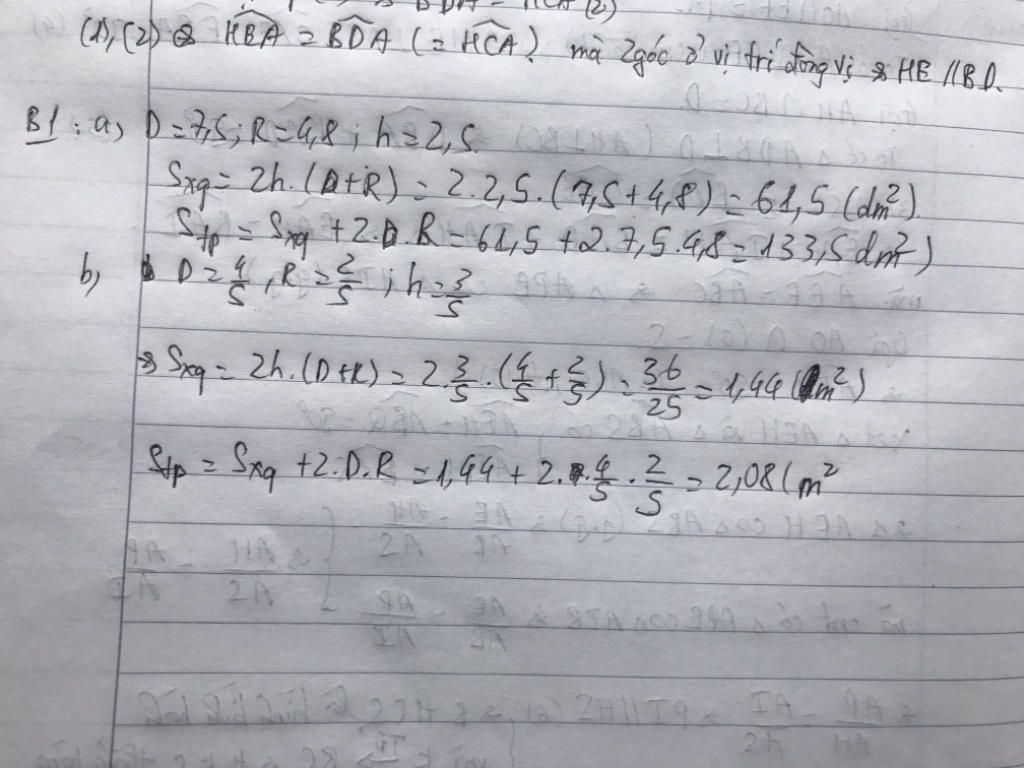 BDA = HCA (2)
(1), (2) => HBA = BDA (= HCA) mà 2 góc ở vị trí đồng vị => HE // BD.
B1: a, D = 7,5; R = 4,8; h = 2,5.
Sxq = 2h.(D+R) = 2.2,5.(7,5+4,8) = 61,5 (dm²).
Stp = Sxq + 2.D.R = 61,5 + 2.7,5.4,8 = 133,5 dm²)
b, D = 4/5, R = 2/5; h = 3/5
=> Sxq = 2h.(D+R) = 2 3/5.(4/5 + 2/5) = 36/25 = 1,44 (m²)
Stp = Sxq + 2.D.R = 1,44 + 2.4/5.2/5 = 2,08 (m²